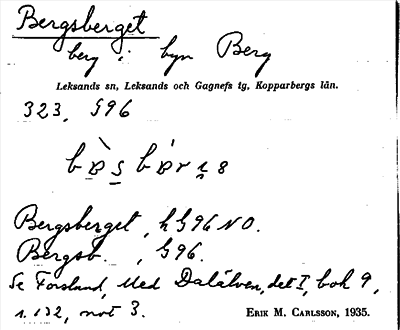 Bergsberget
berg i byn Berg
Leksands sn, Leksands och Gagnefs tg, Kopparbergs län.
323, G96
Bergsberget, h G96 NO.
Bergsb. , G96.
Se Forslund, Med Dalälven, del I, bok 9,
s. 132, not 3.
ERIK M. CARLSSON, 1935.